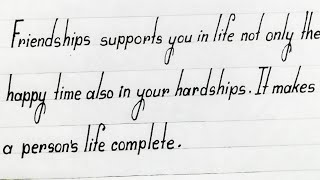 Friendships supports you in life not only the
happy time also in your hardships. It makes
a person's life complete.